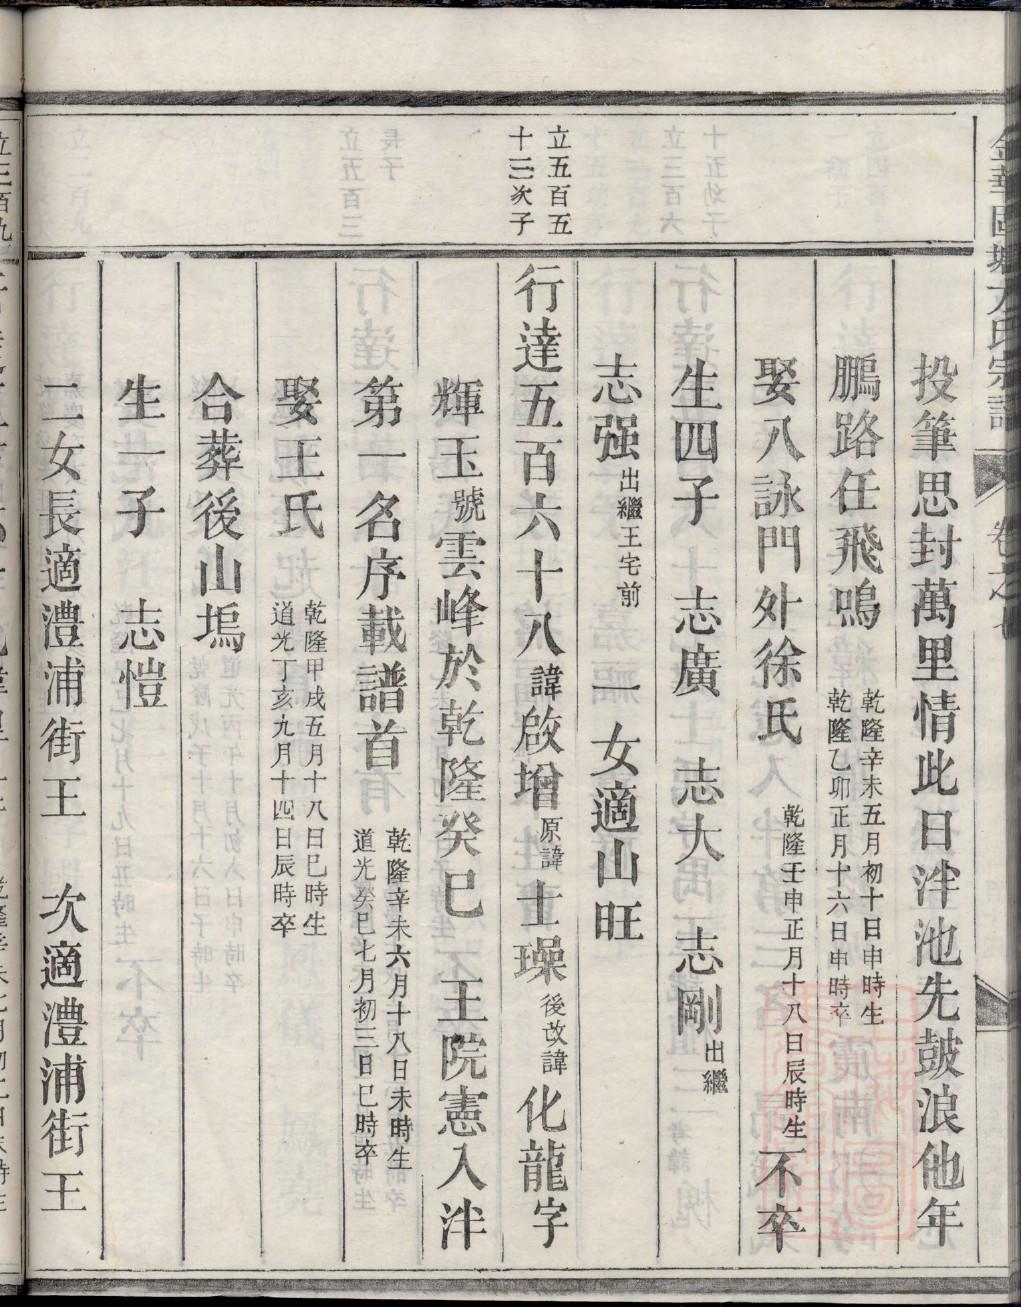 投筆思封萬里情此日泮池先鼓浪他年
鵬路任飛鳴 乾隆辛未五月初十日申時生 乾隆乙卯正月十六日申時卒
娶八詠門外徐氏 乾隆壬申正月十八日辰時生 不卒
生四子 志廣 志大 志剛出繼
志强出繼王宅前 一女適山旺
立五百五
十三次子
行達五百六十八諱啟增原諱士璪後改諱化龍字
輝玉號雲峰於乾隆癸巳 王院憲入泮
第一名序載譜首 乾隆辛未六月十八日未時生 道光癸巳七月初三日巳時卒
娶王氏 乾隆甲戌五月十八日巳時生 道光丁亥九月十四日辰時卒
合葬後山塢
生一子 志愷
二女長適澧浦街王 次適澧浦街王